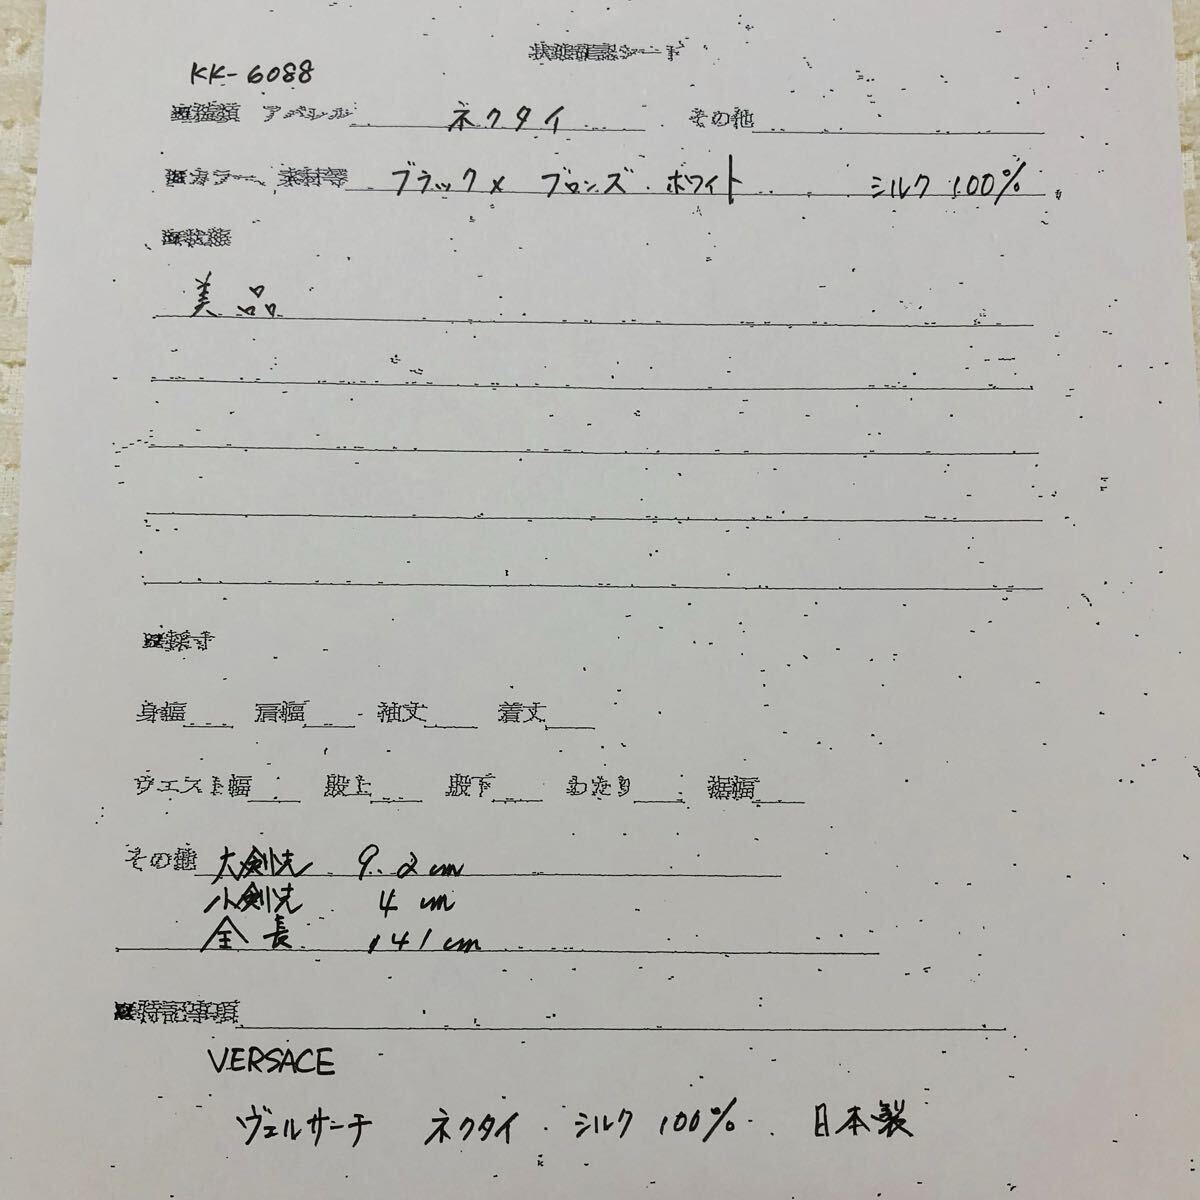 状態確認シート
KK-6088
※種類 アパレル ネクタイ その他
※カラー、素材等 ブラック× ブロンズ・ホワイト シルク100%
※状態
美品
※採寸
身幅 肩幅 袖丈 着丈
ウエスト幅 股上 股下 わたり 裾幅
その他 大剣先 9.2cm
小剣先 4cm
全長 141cm
※特記事項
VERSACE
ヴェルサーチ ネクタイ・シルク100%・日本製